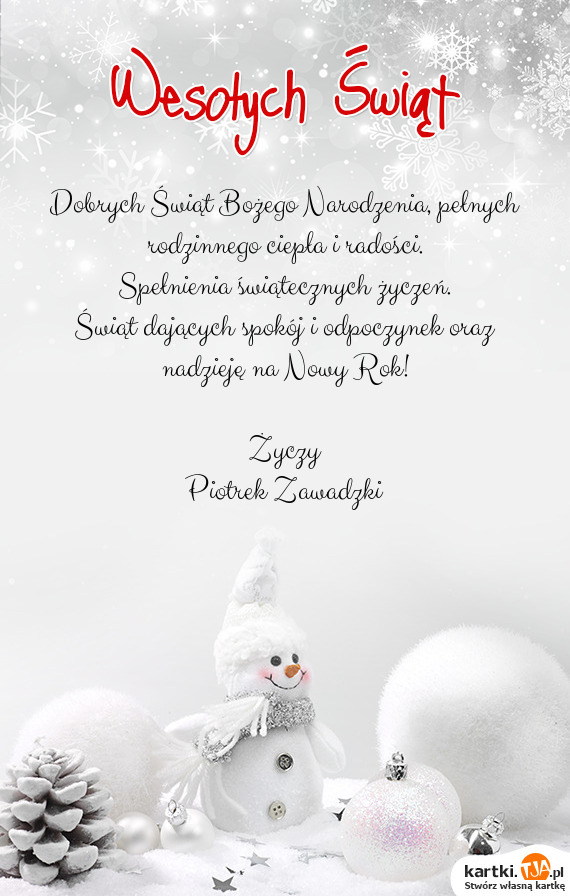 Wesołych Świąt
Dobrych Świąt Bożego Narodzenia, pełnych
rodzinnego ciepła i radości.
Spełnienia świątecznych życzeń.
Świąt dających spokój i odpoczynek oraz
nadzieję na Nowy Rok!
Życzy
Piotrek Zawadzki
kartki.TJA.pl
Stwórz własną kartkę